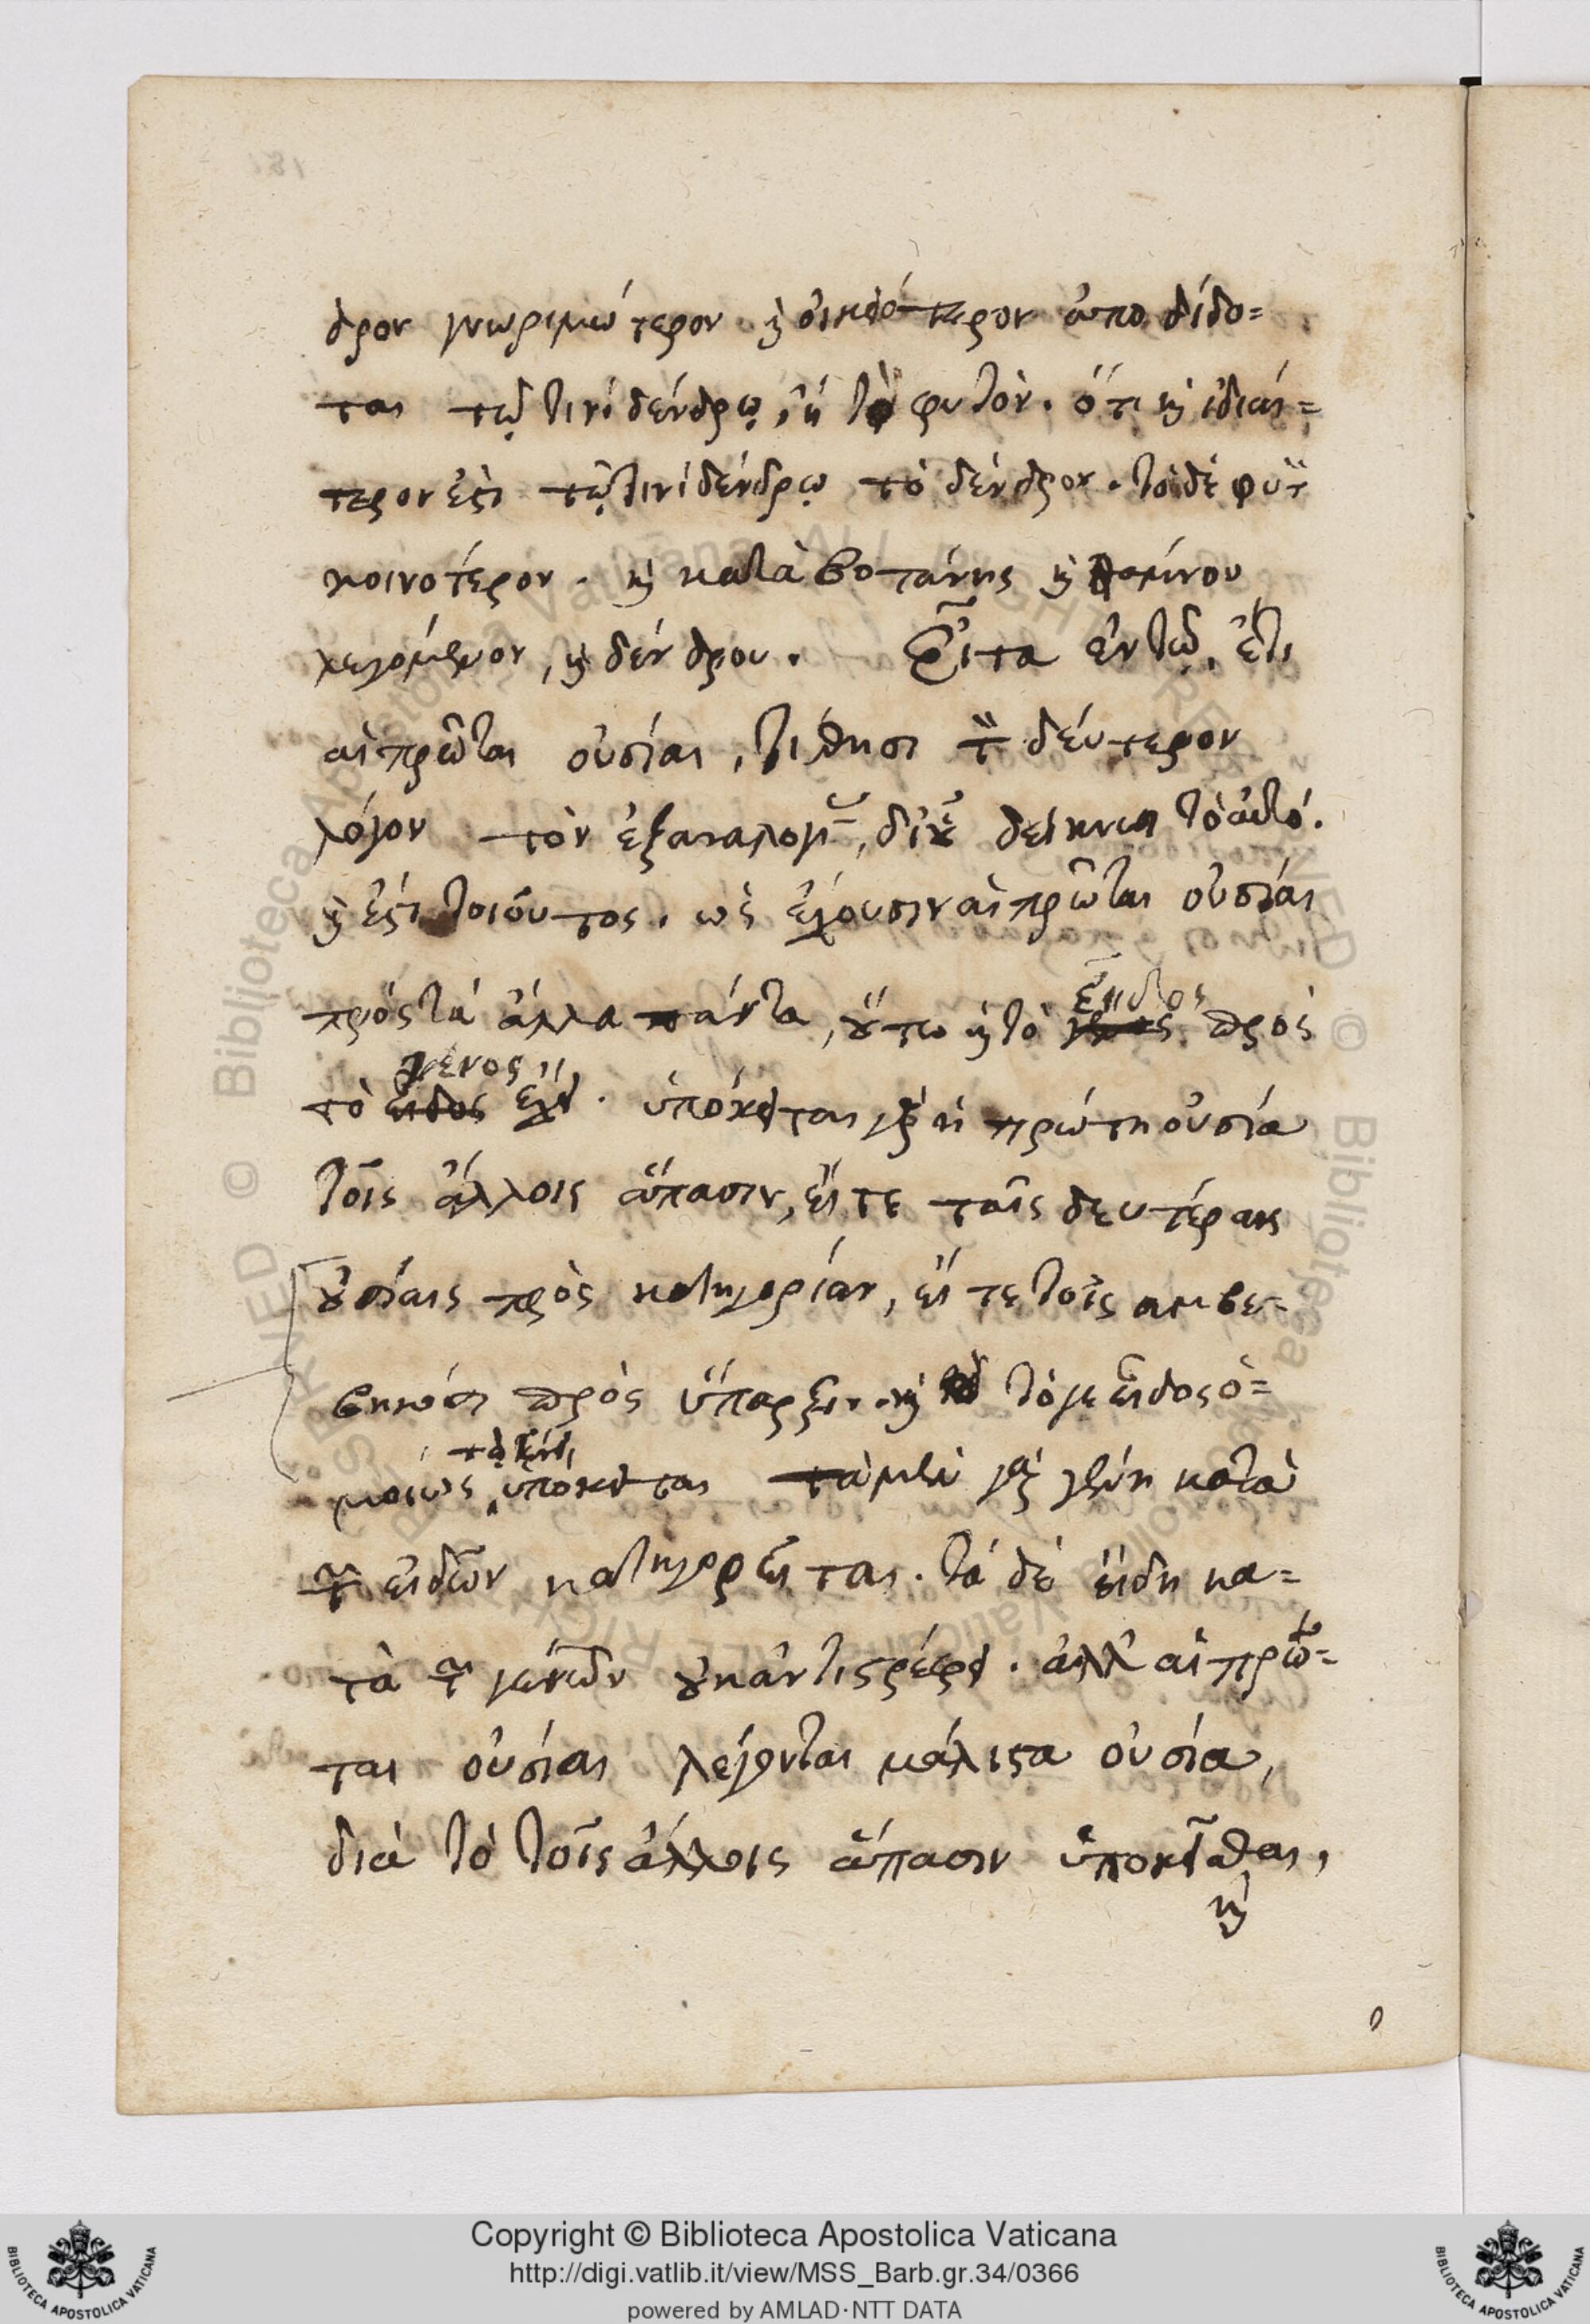 δρον γνωριμώτερον καὶ οἰκειότερον ἀποδίδο=
ται τῷ τινὶ δένδρῳ, ἢ τὸ φυτὸν. ὅτι καὶ ἰδιαί=
τερον ἐστὶ τῷ τινὶ δένδρῳ τὸ δένδρον. τὸ δὲ φυτ
κοινοτέρον. καὶ κατὰ βοτάνης καὶ θαμίνου
λεγόμενον, καὶ δένδρου. Εἶτα ἐν τῷ, ἔτι
αἱ πρῶται οὐσίαι, τίθησι τ δεύτερον
λόγον τὸν ἐξ ἀναλογ, δι οὗ δείκνυσι τὸ αὐτό.
καὶ ἐστὶ τοιοῦτος. ὡς ἔχουσιν αἱ πρῶται οὐσίαι
πρὸς τὰ ἄλλα πάντα, οὕτω καὶ τὸ εἶδος πρὸς
τὸ γένος ἔχει. ὑπόκειται γὰρ ἡ πρώτη οὐσία
τοῖς ἄλλοις ἅπασιν, εἴτε ταῖς δευτέραις
οὐσίαις πρὸς κατηγορίαν, εἴτε τοῖς συμβε=
βηκόσι πρὸς ὕπαρξιν. καὶ τό γε εἶδος ὁ=
μοίως τῷ γένει ὑπόκειται τὰ μὲν γὰρ γένη κατὰ
τ εἰδῶν κατηγορεῖται. τὰ δὲ εἴδη κα=
τὰ τ γενῶν οὐκ ἀντιστρέφει. ἀλλ' αἱ πρῶ=
ται οὐσίαι λέγονται μάλιστα οὐσία,
διὰ τὸ τοῖς ἄλλοις ἅπασιν ὑποκεῖσθαι,
καὶ
Copyright © Biblioteca Apostolica Vaticana
http://digi.vatlib.it/view/MSS_Barb.gr.34/0366
powered by AMLAD·NTT DATA
BIBLIOTECA APOSTOLICA VATICANA
BIBLIOTECA APOSTOLICA VATICANA